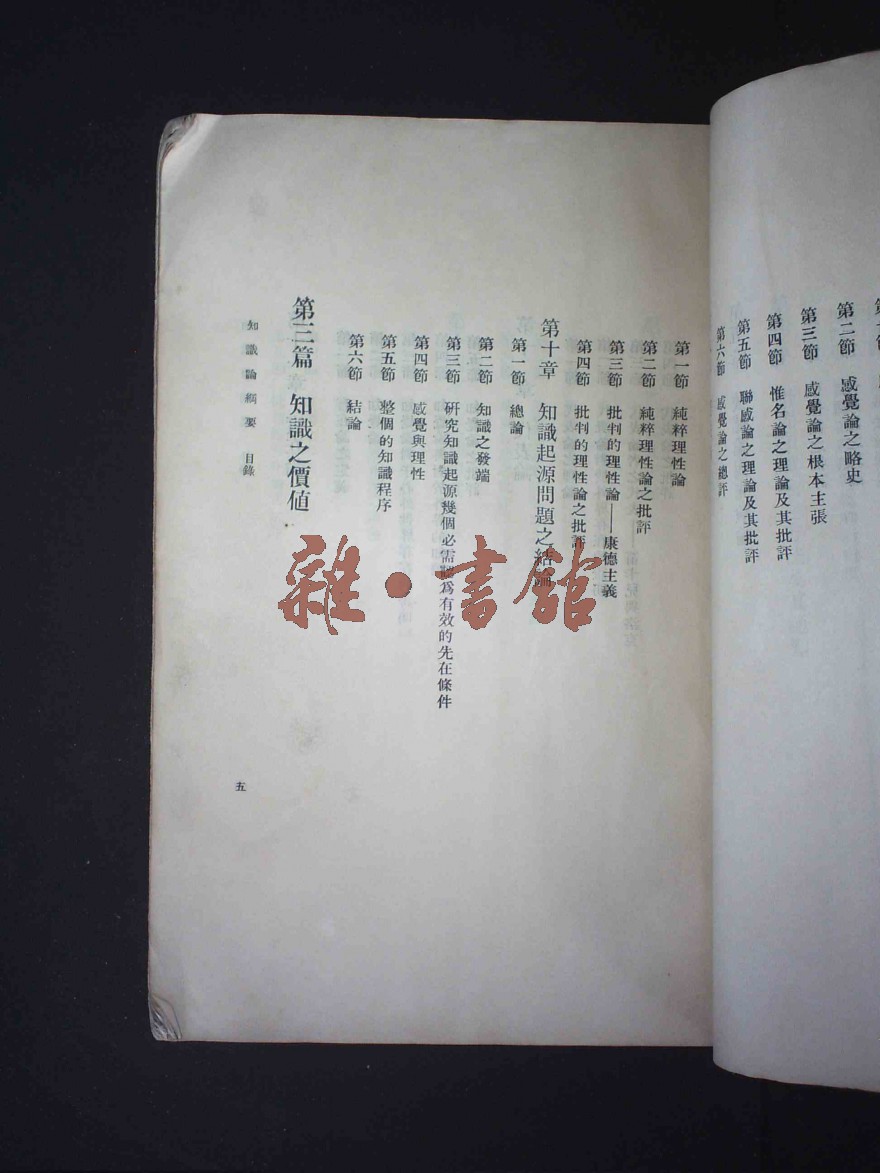 第二節　感覺論之略史
第三節　感覺論之根本主張
第四節　惟名論之理論及其批評
第五節　聯感論之理論及其批評
第六節　感覺論之總評
第一節　純粹理性論
第二節　純粹理性論之批評
第三節　批判的理性論——康德主義
第四節　批判的理性論之批評
第十章　知識起源問題之結論
第一節　總論
第二節　知識之發端
第三節　研究知識起源幾個必需認爲有效的先在條件
第四節　感覺與理性
第五節　整個的知識程序
第六節　結論
第三篇　知識之價值
知識論綱要　目錄
五
雜·書館